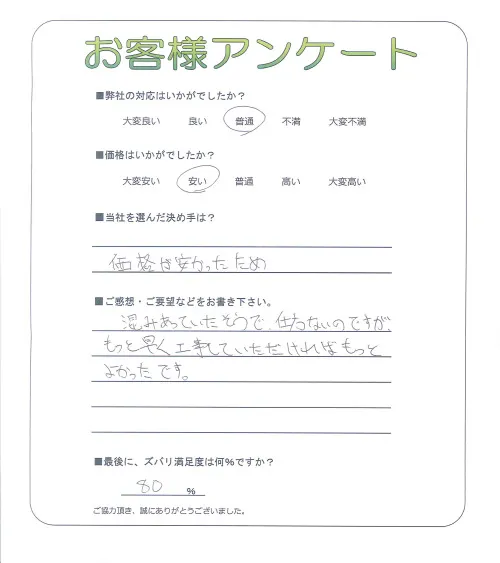 お客様アンケート
■弊社の対応はいかがでしたか？
大変良い 良い 普通 不満 大変不満
■価格はいかがでしたか？
大変安い 安い 普通 高い 大変高い
■当社を選んだ決め手は？
価格が安かったため
■ご感想・ご要望などをお書き下さい。
混みあっていたそうで、仕方ないのですが、
もっと早く工事していただければもっと
よかったです。
■最後に、ズバリ満足度は何％ですか？
80 %
ご協力頂き、誠にありがとうございました。